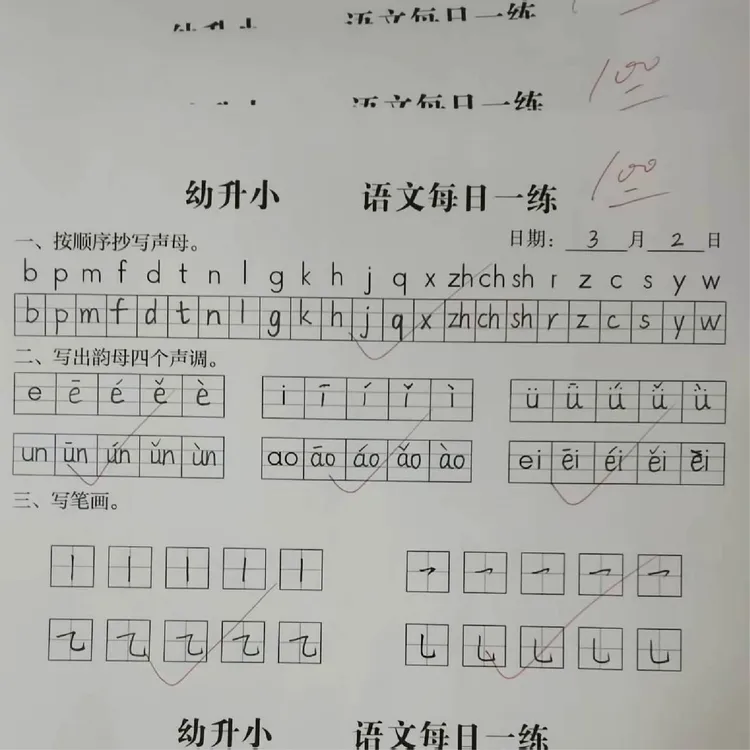 语文每日一练
语文每日一练 100
幼升小 语文每日一练 100
一、按顺序抄写声母。 日期: 3 月 2 日
b p m f d t n l g k h j q x zh ch sh r z c s y w
b p m f d t n l g k h j q x zh ch sh r z c s y w
二、写出韵母四个声调。
e ē é ě è i ī í ǐ ì ü ǖ ǘ ǚ ǜ
un ūn ún ǔn ùn ao āo áo ǎo ào ei ēi éi ěi èi
三、写笔画。
幼升小 语文每日一练